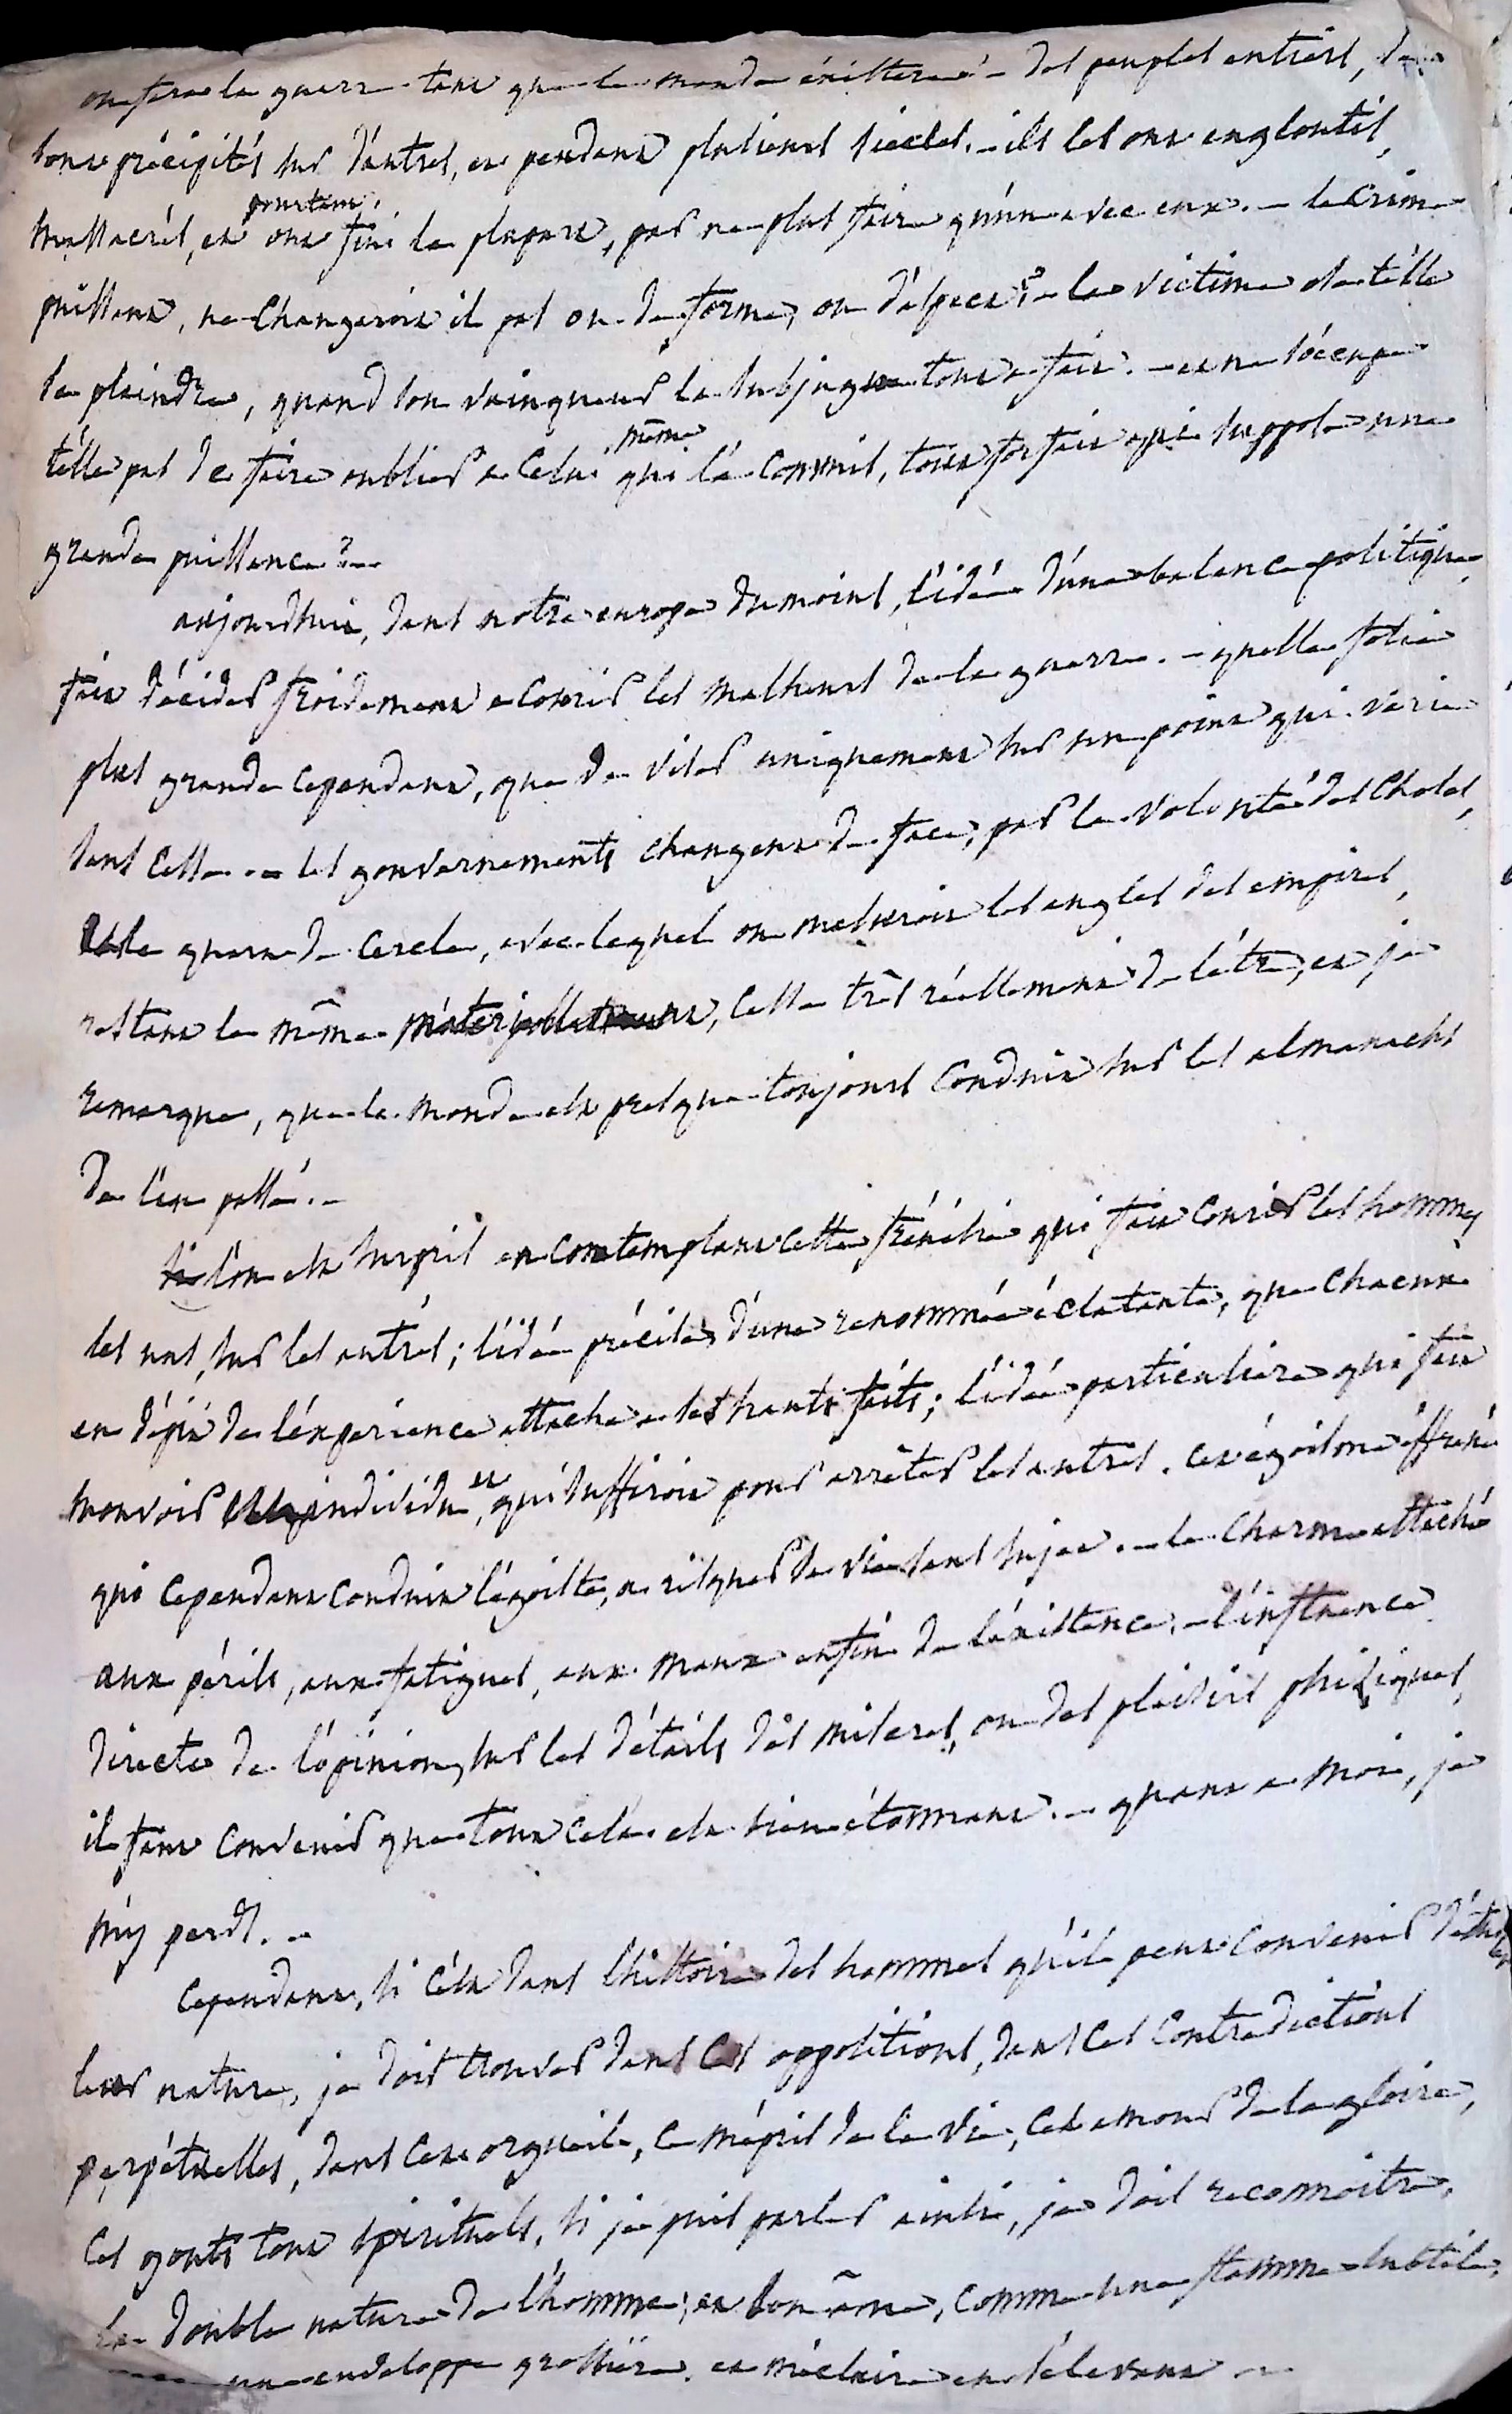 on fera la guerre tant que le monde éxistera. - des peuples entiers, se
sont précipités sur d'autres, et pendant plusieurs siecles. - ils les ont engloutis,
massacrés, et ont pourtant fini la plupart, par ne plus faire qu'un avec eux. - le Crime
puissant, ne Changeroit il pas ou de forme, ou d'espece ? - la victime a t'elle
se plaindre, quand son vainqueur la subjugue tout a fait. - et ne s'occupe
t'elle pas de faire oublier a Celui même qui l'a Commis, tout forfait qui suppose une
grande puissance ? -
aujourdhui, dans notre europe du moins, l'idée d'une balance politique,
fait décider froidement a Courir les malheurs de la guerre. - quelle folie
plus grande Cependant, que de viser uniquement sur un point qui varie
sans Cesse. - les gouvernements changent de face, par la volonté des Choses,
le quart de Cercle, avec lequel on mesuroit les angles des empires,
restant le même, Cesse très réellement de l'être, et je
remarque, que le monde est presque toujours Conduit sur les almanachs
de l'an passé. -
si l'on est surpris en Contemplant Cette frénésie qui fait Courir les hommes
les uns, sur les autres ; l'idée précise d'une renommée éclatante, que Chacun
en dépit de l'éxpérience attache a ses hauts faits ; l'idée particuliere qui fait
mouvoir individu, et qui suffiroit pour arrêter les autres. Cet égoïsme effréné
qui Cependant Conduit l'égoiste, a risquer sa vie sans sujet. - le Charme attaché
aux périls, aux fatigues, aux maux enfin de l'éxistence. - l'influence
directe de l'opinion, sur les détails des miseres, ou des plaisirs phisiques,
il faut Convenir que tout Cela est bien étonnant. - quant a moi, je
m'y perds. -
Cependant, si C'est dans l'histoire des hommes qu'il peut Convenir d'étudier
leur nature, je dois trouver dans Ces oppositions, dans Ces Contradictions
perpétuelles, dans Cet orgueil, Ce mépris de la vie, Cet amour de la gloire,
Ces gouts tout spirituels, si je puis parler ainsi, je dois reconnoitre,
la double nature de l'homme ; et son âme, Comme une flamme subtile,
une enveloppe grossiere. et m'éclaire en s'élevant -